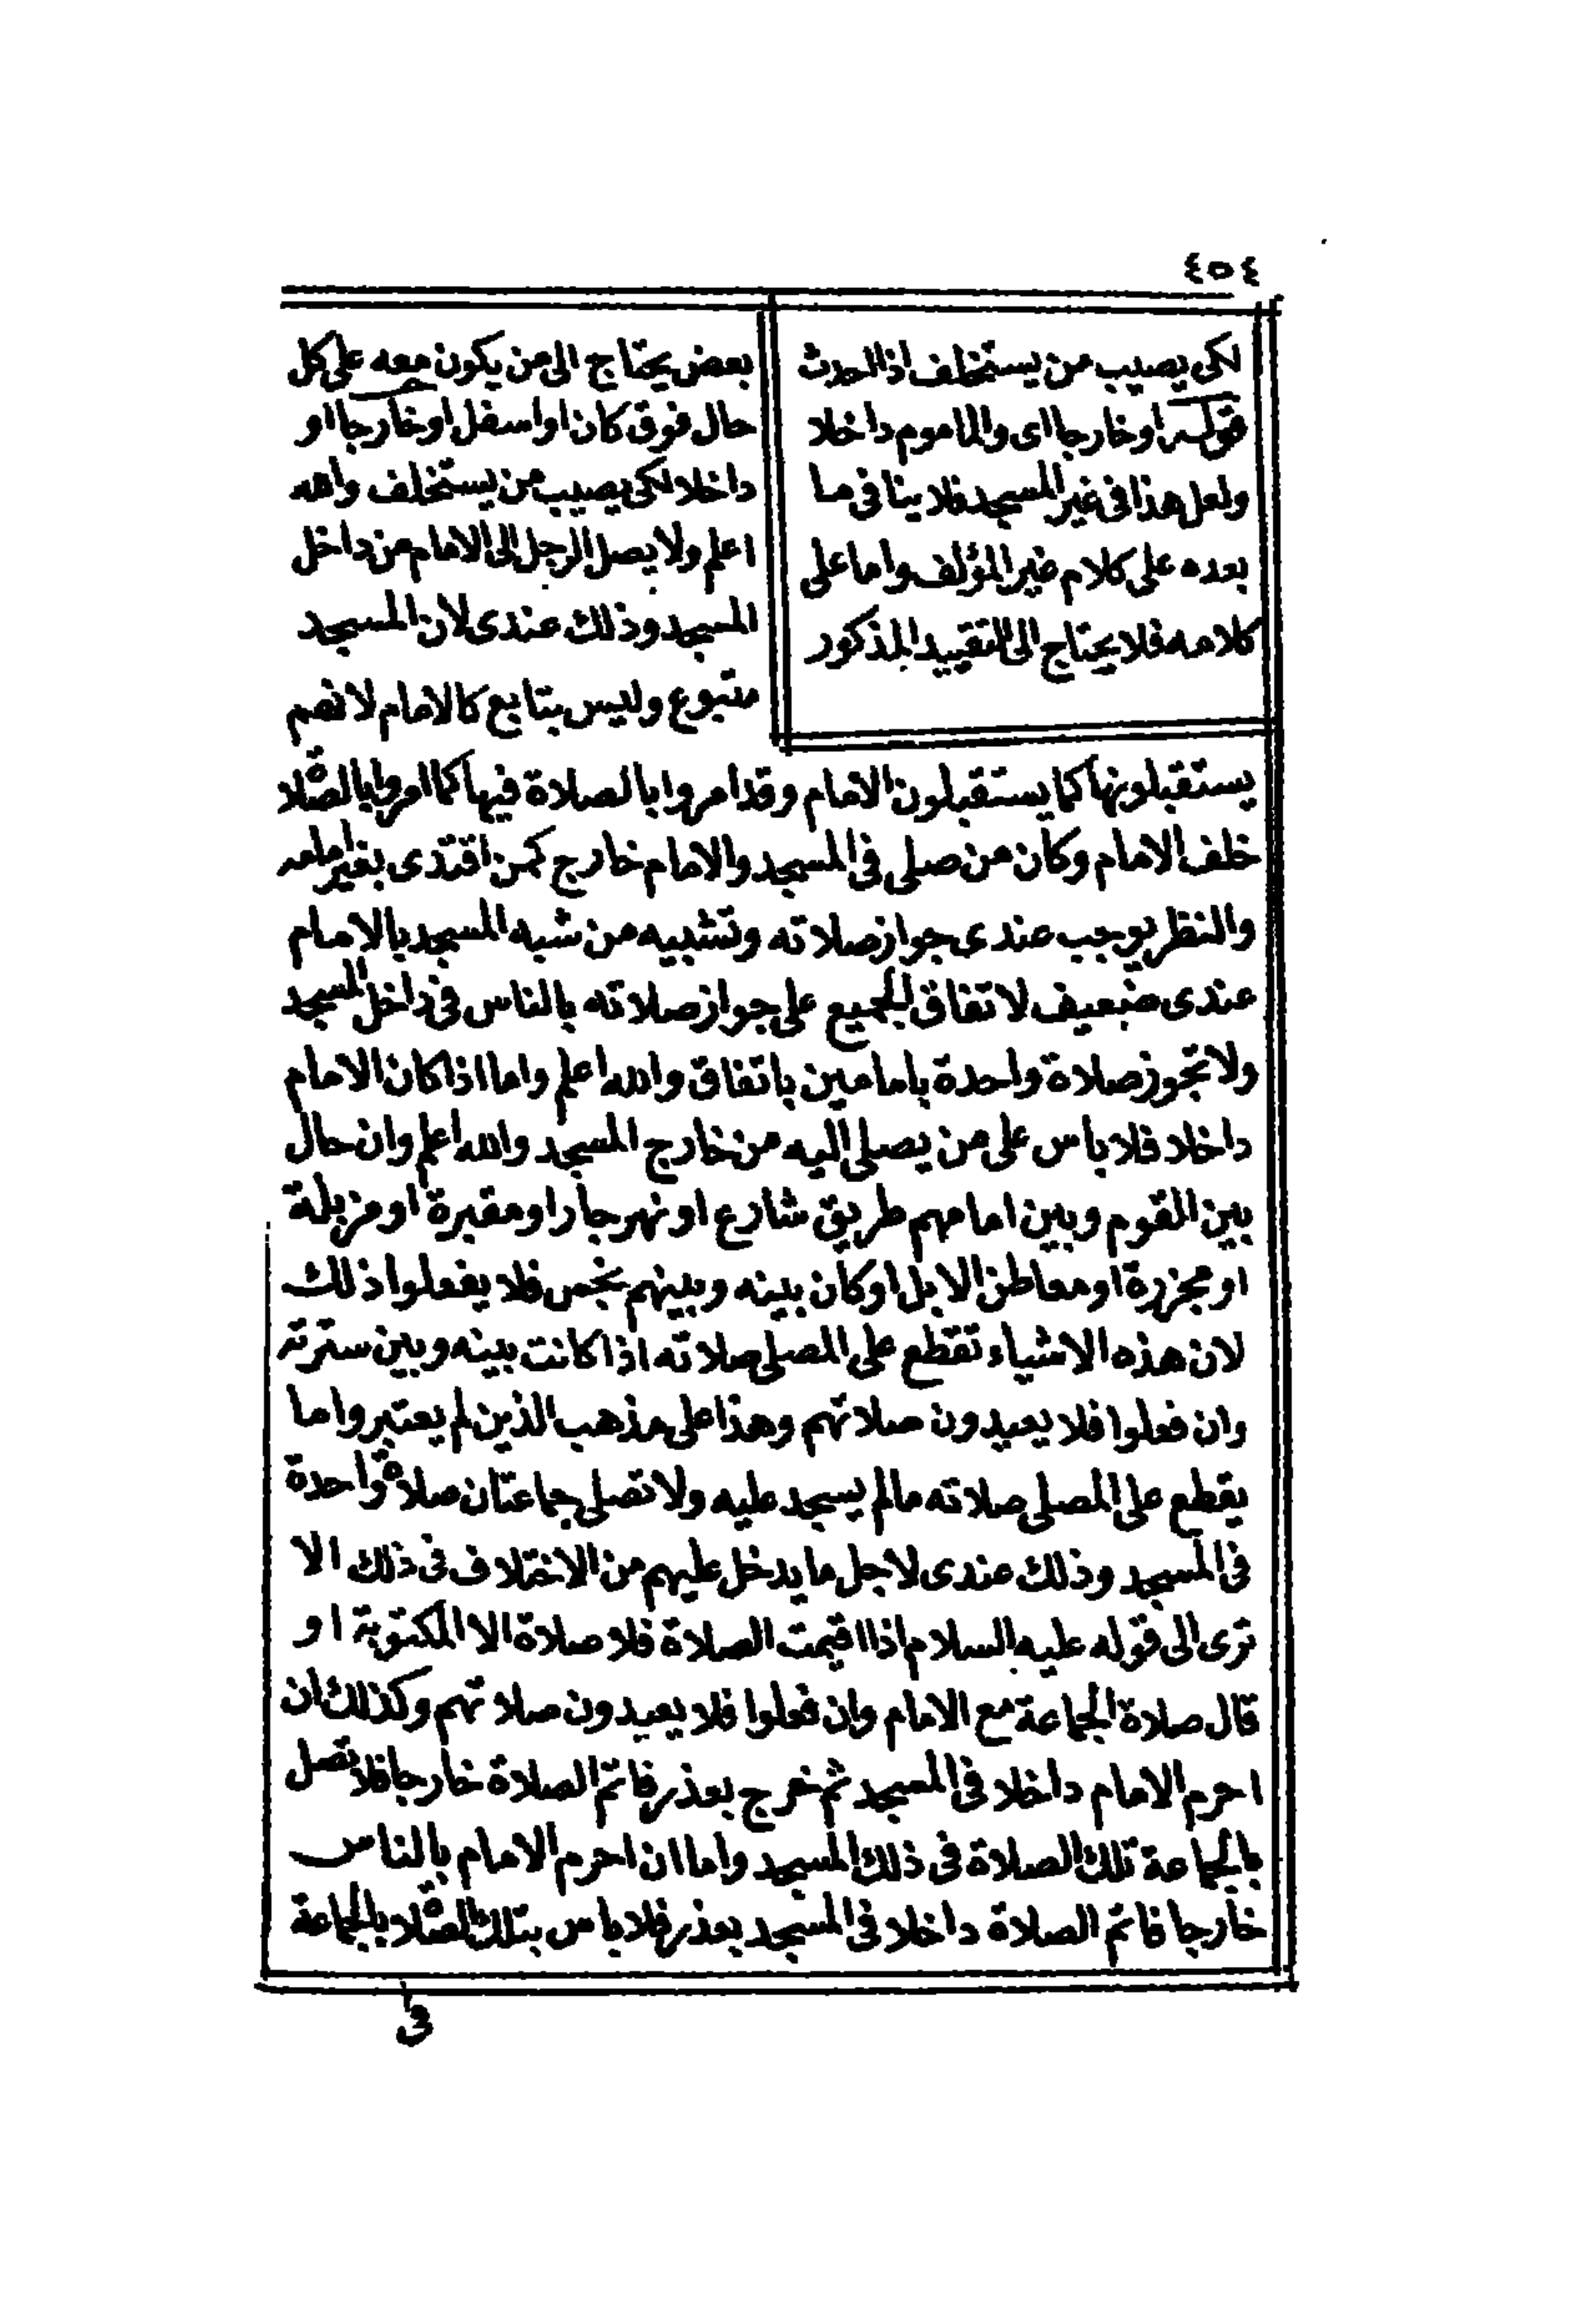 ٤٥٤
لكى يصيب من يستخلف اذا احدث
قوله او خارجا اى والماموم داخلا
ولعل هذا فى غير المسجد فلا ينافى ما
بعده على كلام غير المؤلف واما على
كلامه فلا يحتاج الى التقييد المذكور
بعض يحتاج الى من يكون معه على كل
حال فوق كان او اسفل او خارجا او
داخلا لكى يصيب من يستخلف والله
اعلم ولا يصل الرجل الى الامام من داخل
المسجد وذلك عندى لان المسجد
متبوع وليس بتابع كالامام لانهم
يستقبلونها كما يستقبلون الامام وقد امروا بالصلاة فيها كما امروا بالصلاة
خلف الامام وكان من صلى فى المسجد والامام خارج كمن اقتدى بغير امامه
والنظر يوجب عندى جواز صلاته وتشبيه من شبه المسجد بالامام
عندى ضعيف لاتفاق الجميع على جواز صلاته بالناس فى داخل المسجد
ولا تجوز صلاة واحدة بامامين باتفاق والله اعلم واما اذا كان الامام
داخلا فلا باس على من يصلى اليه من خارج المسجد والله اعلم وان حال
بين القوم وبين امامهم طريق شارع او نهر جار او مقبرة او مزبلة
او مجزرة او معاطن الابل او كان بينه وبينهم نجس فلا يفعلوا ذلك
لان هذه الاشياء تقطع على المصلى صلاته اذا كانت بينه وبين سترته
وان فعلوا فلا يعيدون صلاتهم وهذا على مذهب الذين لم يعتبروا ما
يقطع على المصلى صلاته مالم يسجد عليه ولا تصلى جماعتان صلاة واحدة
فى المسجد وذلك عندى لاجل ما يدخل عليهم من الاختلاف فى ذلك الا
ترى الى قوله عليه السلام اذا اقيمت الصلاة فلا صلاة الا المكتوبة او
قال صلاة الجماعة مع الامام وان فعلوا فلا يعيدون صلاتهم وكذلك ان
احرم الامام داخلا فى المسجد ثم خرج بعذر فاتم الصلاة خارجا فلا تصل
بالجماعة تلك الصلاة فى ذلك المسجد واما ان احرم الامام بالناس
خارجا فاتم الصلاة داخلا فى المسجد بعذر فلا باس بتلك الصلاة بالجماعة
فى